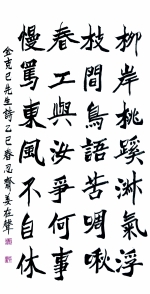 柳岸桃蹊淋氣浮
枝間鳥語苦啁啾
春工與汝爭何事
慢罵東風不自休
金克己先生詩乙巳春忍齋姜在聲